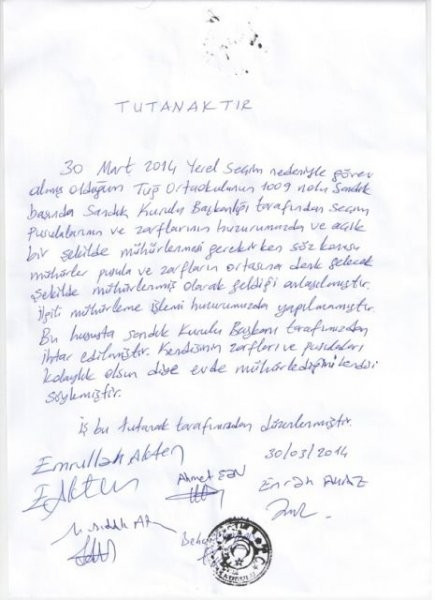 TUTANAKTIR
30 Mart 2014 Yerel Seçim nedeniyle görev
almış olduğum Ortaokulunun 1009 nolu Sandık
başında Sandık Kurulu Başkanlığı tarafından seçim
pusulalarının ve zarflarının huzurumuzda ve açık
bir şekilde mühürlenmesi gerekirken söz konusu
mühürler pusula ve zarfların ortasına denk gelecek
şekilde mühürlenmiş olarak geldiği anlaşılmıştır.
İlgili mühürleme işlemi huzurumuzda yapılmamıştır.
Bu hususta sandık Kurulu Başkanı tarafımızdan
ihtar edilmiştir. Kendisinin zarfları ve pusulaları
kolaylık olsun diye evde mühürlediğini kendisi
söylemiştir.
İş bu tutanak tarafımızdan düzenlenmiştir.
30/03/2014
Emrullah Akten
Ahmet
Emrah
E Akten